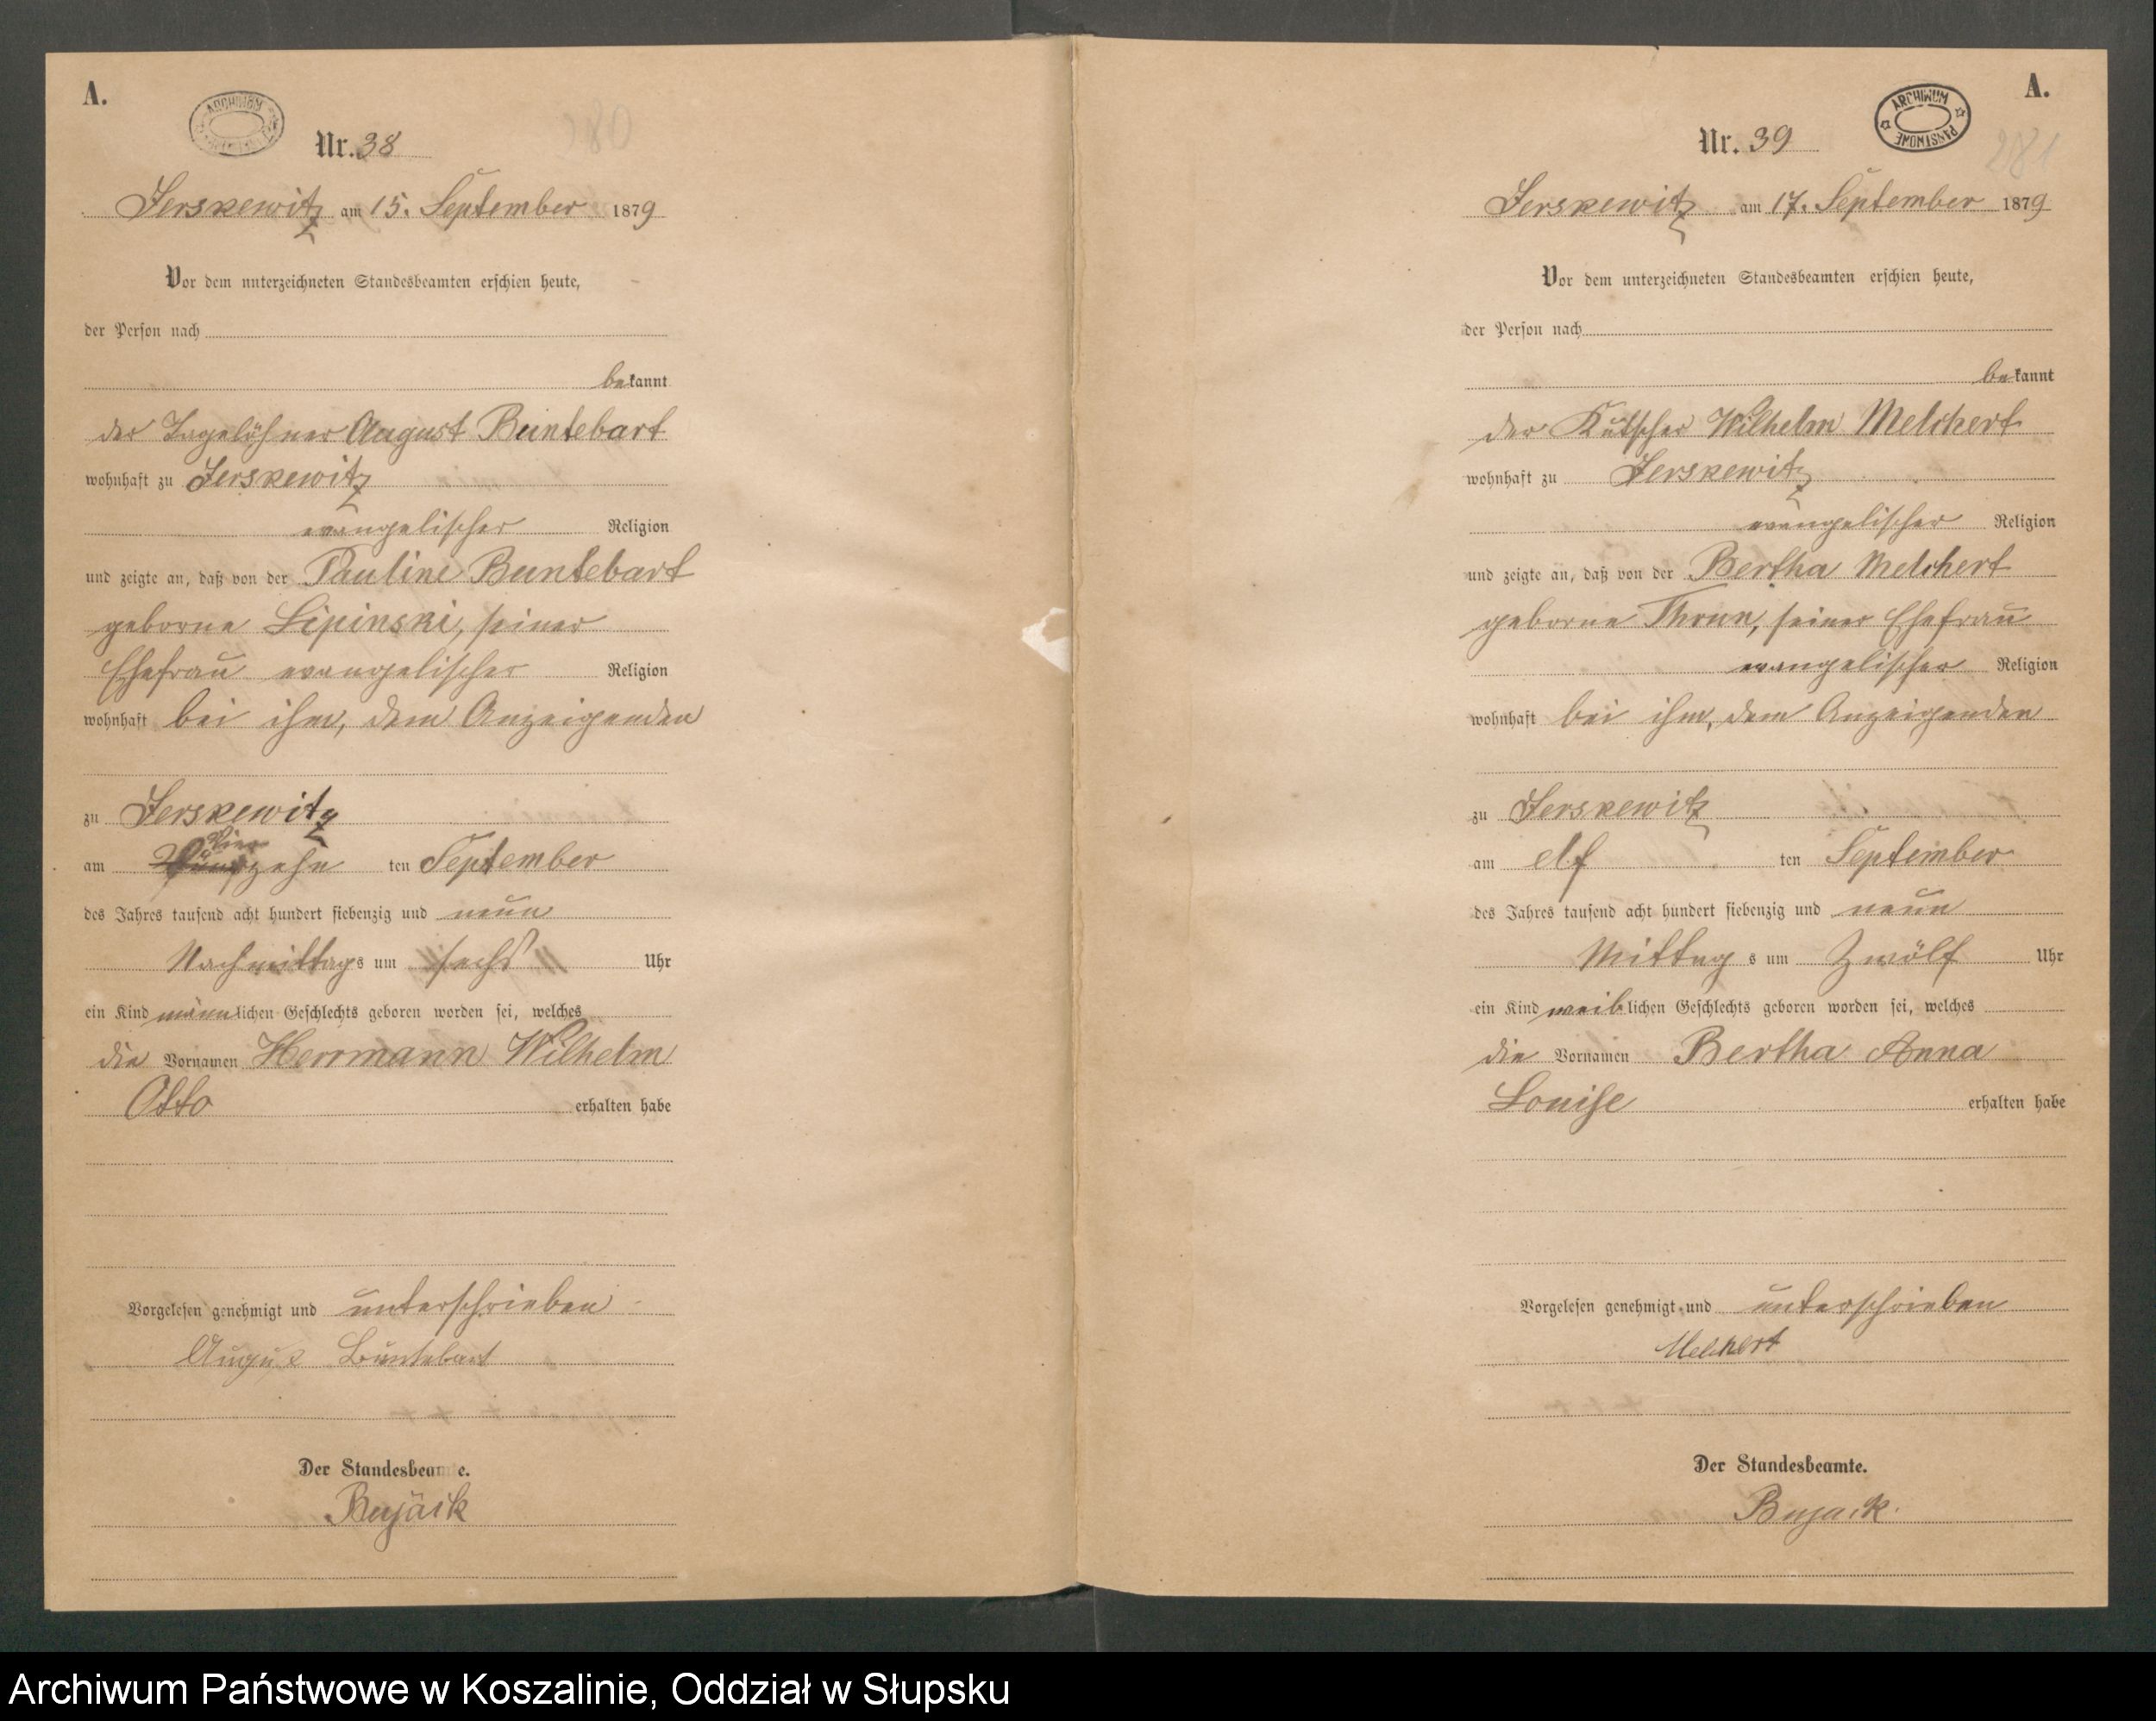 A.
ARCHIWUM
Nr. 38
Jerskewitz am 15. September 1879
Vor dem unterzeichneten Standesbeamten erschien heute,
der Person nach
bekannt
der Tagelöhner August Buntebart
wohnhaft zu Jerskewitz
evangelischer Religion
und zeigte an, daß von der Pauline Buntebart
geborne Lipinski, seiner
Ehefrau evangelischer Religion
wohnhaft bei ihm, dem Anzeigenden
zu Jerskewitz
Vier
am Fünfzehn ten September
des Jahres tausend acht hundert siebenzig und neun
Nachmittags um sechs Uhr
ein Kind männlichen Geschlechts geboren worden sei, welches
die Vornamen Herrmann Wilhelm
Otto erhalten habe
Vorgelesen genehmigt und unterschrieben
August Buntebart
Der Standesbeamte.
Bujack
A.
ARCHIWUM PAŃSTWOWE
281
Nr. 39
Jerskewitz am 17. September 1879
Vor dem unterzeichneten Standesbeamten erschien heute,
der Person nach
bekannt
der Kutscher Wilhelm Melchert
wohnhaft zu Jerskewitz
evangelischer Religion
und zeigte an, daß von der Bertha Melchert
geborne Thrun, seiner Ehefrau
evangelischer Religion
wohnhaft bei ihm, dem Anzeigenden
zu Jerskewitz
am elf ten September
des Jahres tausend acht hundert siebenzig und neun
Mittags um Zwölf Uhr
ein Kind weiblichen Geschlechts geboren worden sei, welches
die Vornamen Bertha Anna
Louise erhalten habe
Vorgelesen genehmigt und unterschrieben
Melchert
Der Standesbeamte.
Bujack
Archiwum Państwowe w Koszalinie, Oddział w Słupsku